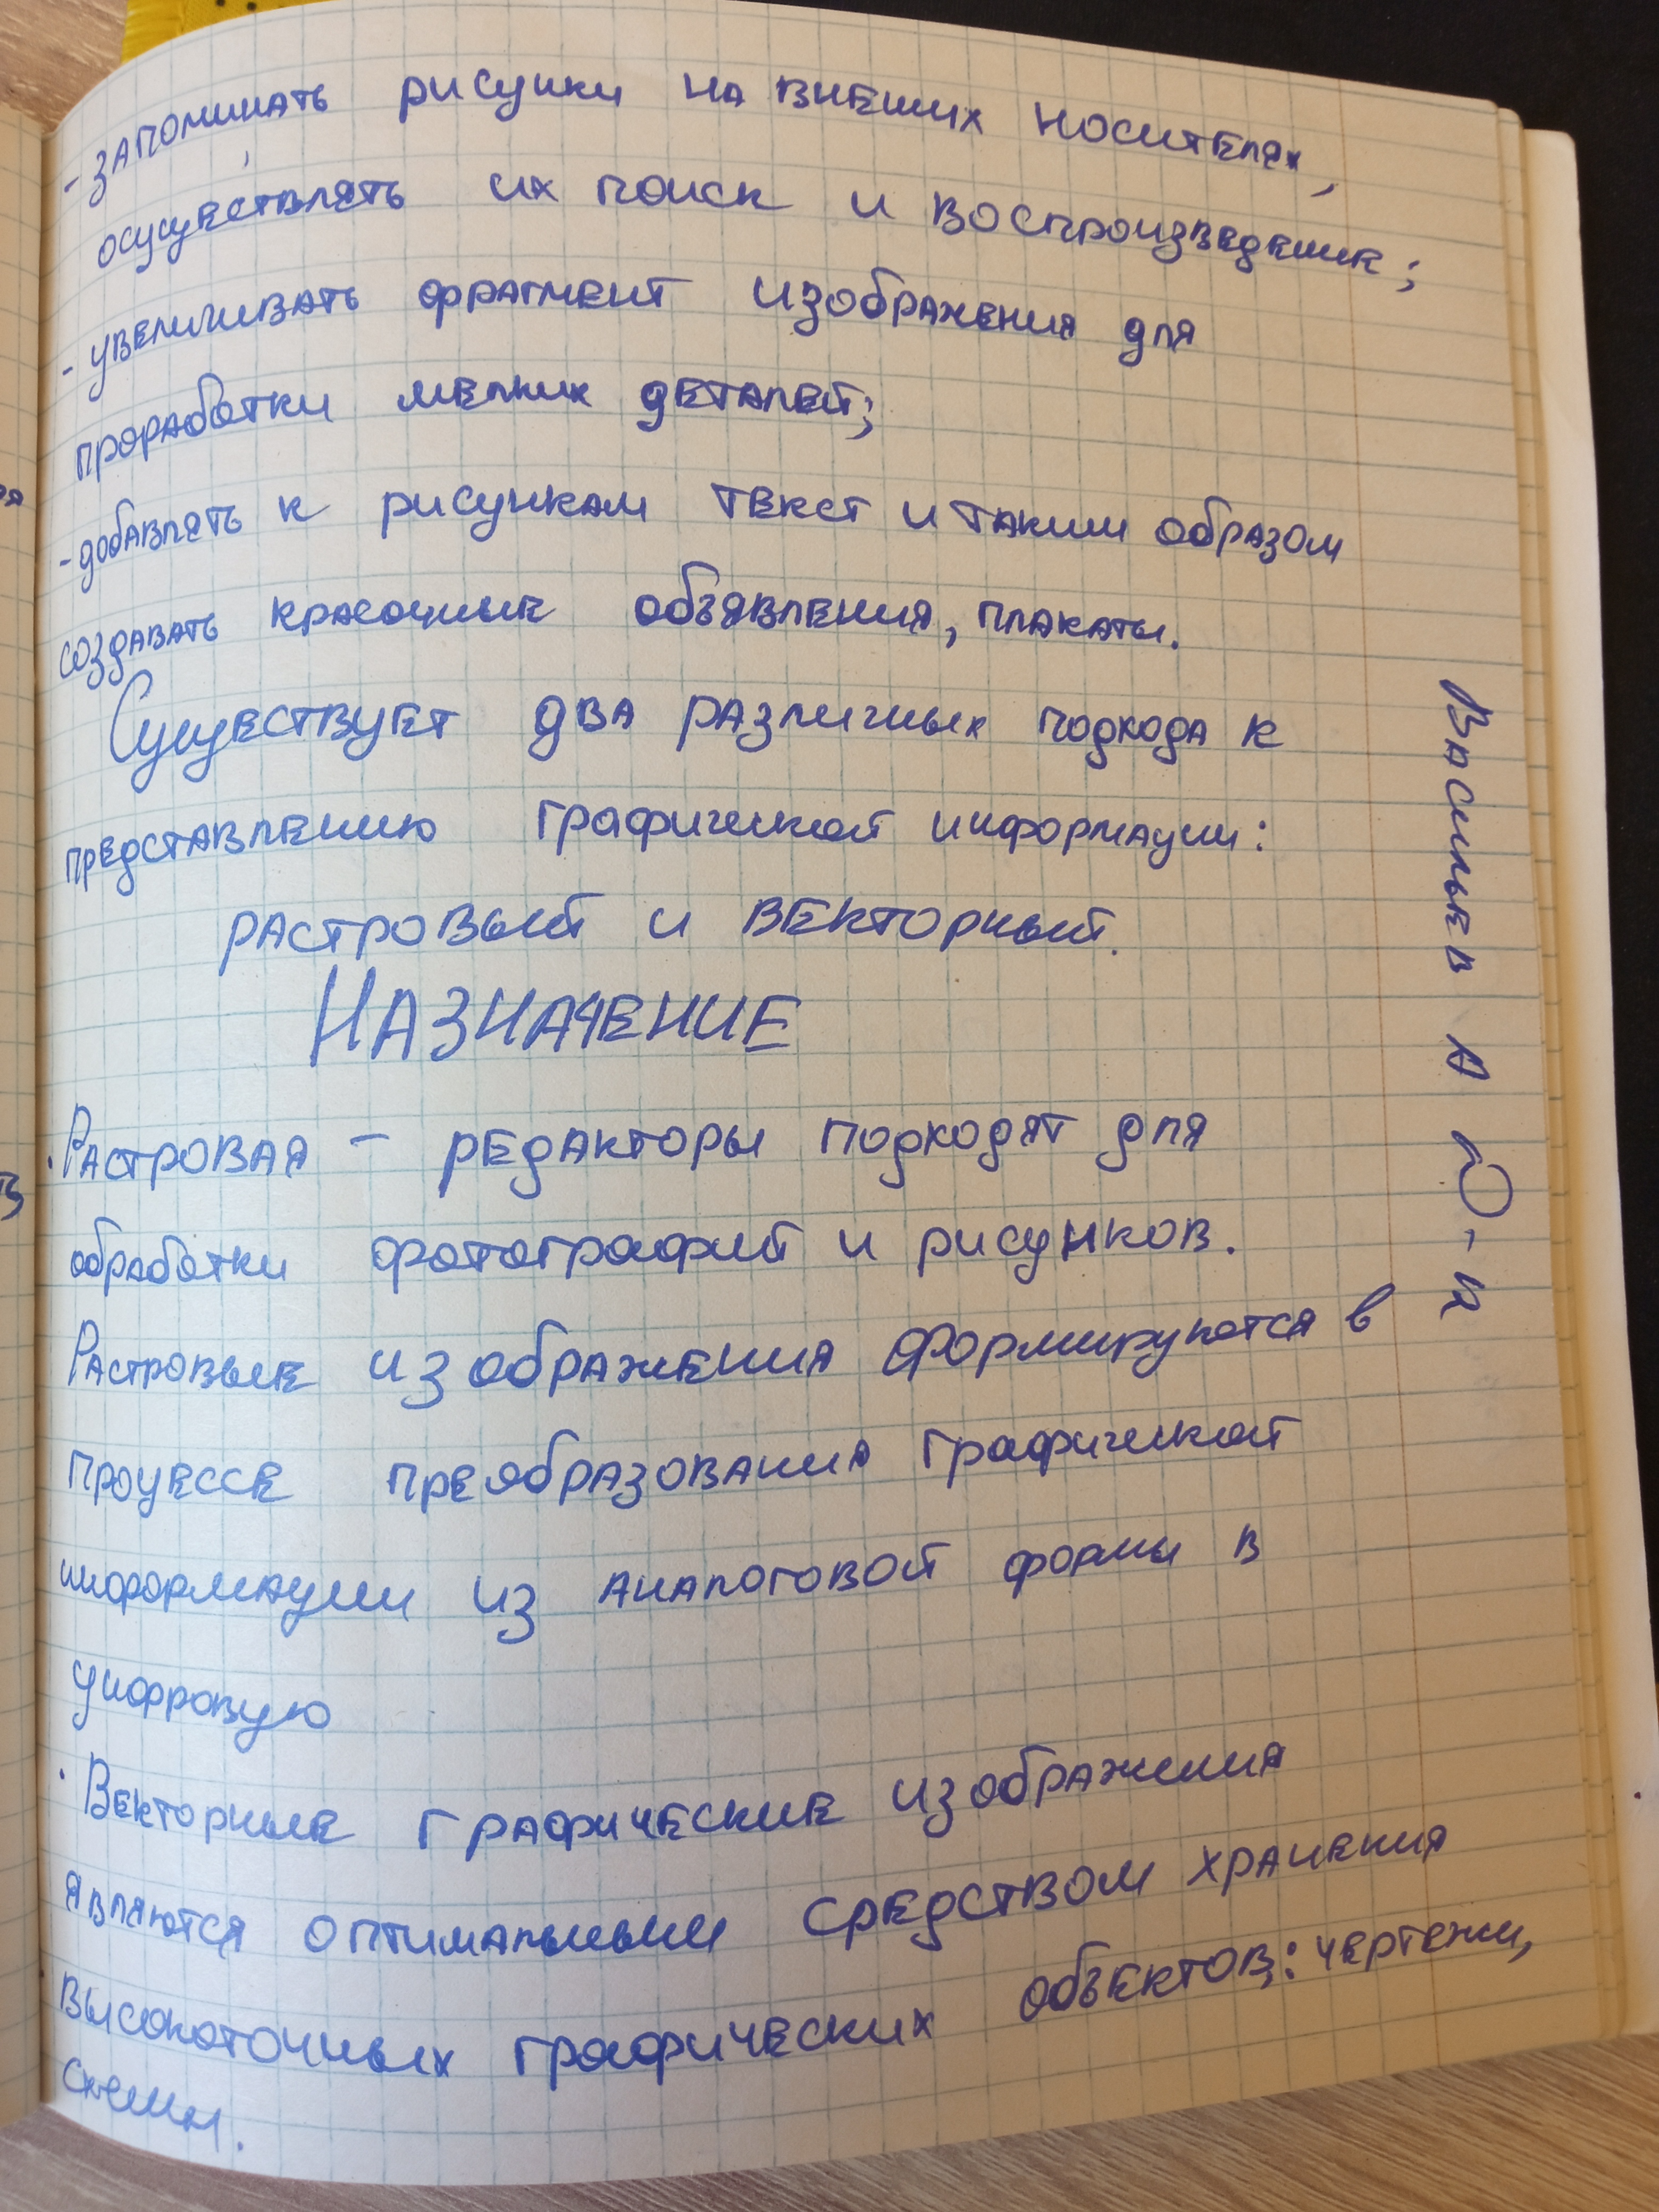 - запоминать рисунки на внеших носителях,
осуществлять их поиск и воспроизведение;
- увеличивать фрагмент изображения для
проработки мелких деталей;
- добавлять к рисункам текст и таким образом
создавать красочные объявления, плакаты.
Существует два различных подхода к
представлению графической информации:
растровый и векторный.
НАЗНАЧЕНИЕ
· Растровая – редакторы подходят для
обработки фотографий и рисунков.
Растровые изображения формируются в
процессе преобразования графической
информации из аналоговой формы в
цифровую
· Векторные графические изображения
являются оптимальным средством хранения
высокоточных графических объектов: чертежи,
схемы.
Васильев А